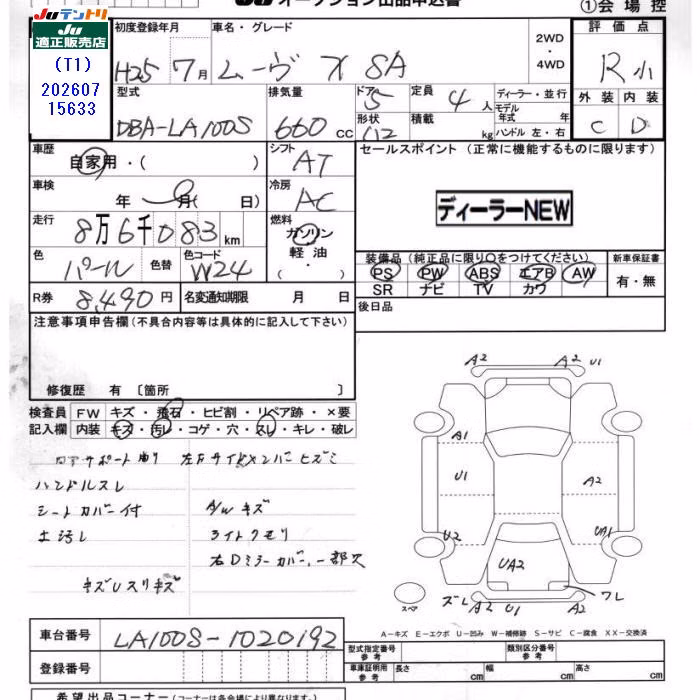 JU オークション出品申込書
①会場控
Juテントリ
JU
適正販売店
(T1)
202607
15633
初度登録年月
H25 7月
車名・グレード
ムーヴ X SA
2WD
・
4WD
評価点
R小
外装 内装
C D
型式
DBA-LA100S
排気量
660 cc
ドア 5
形状
定員 4 人
積載 kg
ディーラー・並行
モデル
年式 年
ハンドル 左・右
車歴
自家用・( )
シフト
AT
セールスポイント (正常に機能するものに限ります)
ディーラーNEW
車検
年 月( 日)
冷房
AC
走行
8万6千083km
燃料
ガソリン
・
軽油
・
( )
色
パール
色替
色コード
W24
装備品(純正品に限り○をつけてください)
PS PW ABS エアB AW
SR ナビ TV カワ
新車保証書
有・無
R券
8,490円
名変通知期限 月 日
後日品
注意事項申告欄(不具合内容等は具体的に記入して下さい)
修復歴 有 〔箇所 〕
検査員
記入欄
FW キズ・飛石・ヒビ割・リペア跡・×要
内装 キズ・汚レ・コゲ・穴・スレ・キレ・破レ
コアサポート曲り 左右サイドメンバーヒズミ
ハンドルスレ
シートカバー付
A/Wキズ
土活し
ライトクモリ
右Dミラーカバー、一部欠
キズUスリキズ
A2
A2 U1
A1
U1
A2
U2
UA1
UA2
スペア
ズレ A2 U1 A2 ワレ
A-キズ E-エクボ U-凹み W-補修跡 S-サビ C-腐食 XX-交換済
車台番号
LA100S-1020192
登録番号
型式指定番号
参考
類別区分番号
参考
車庫証明用
参考
長さ cm
幅 cm
高さ cm
希望出品コーナー(コーナーは各会場により異なります)